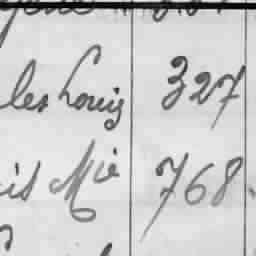 les Louis 327
is Mie 768.